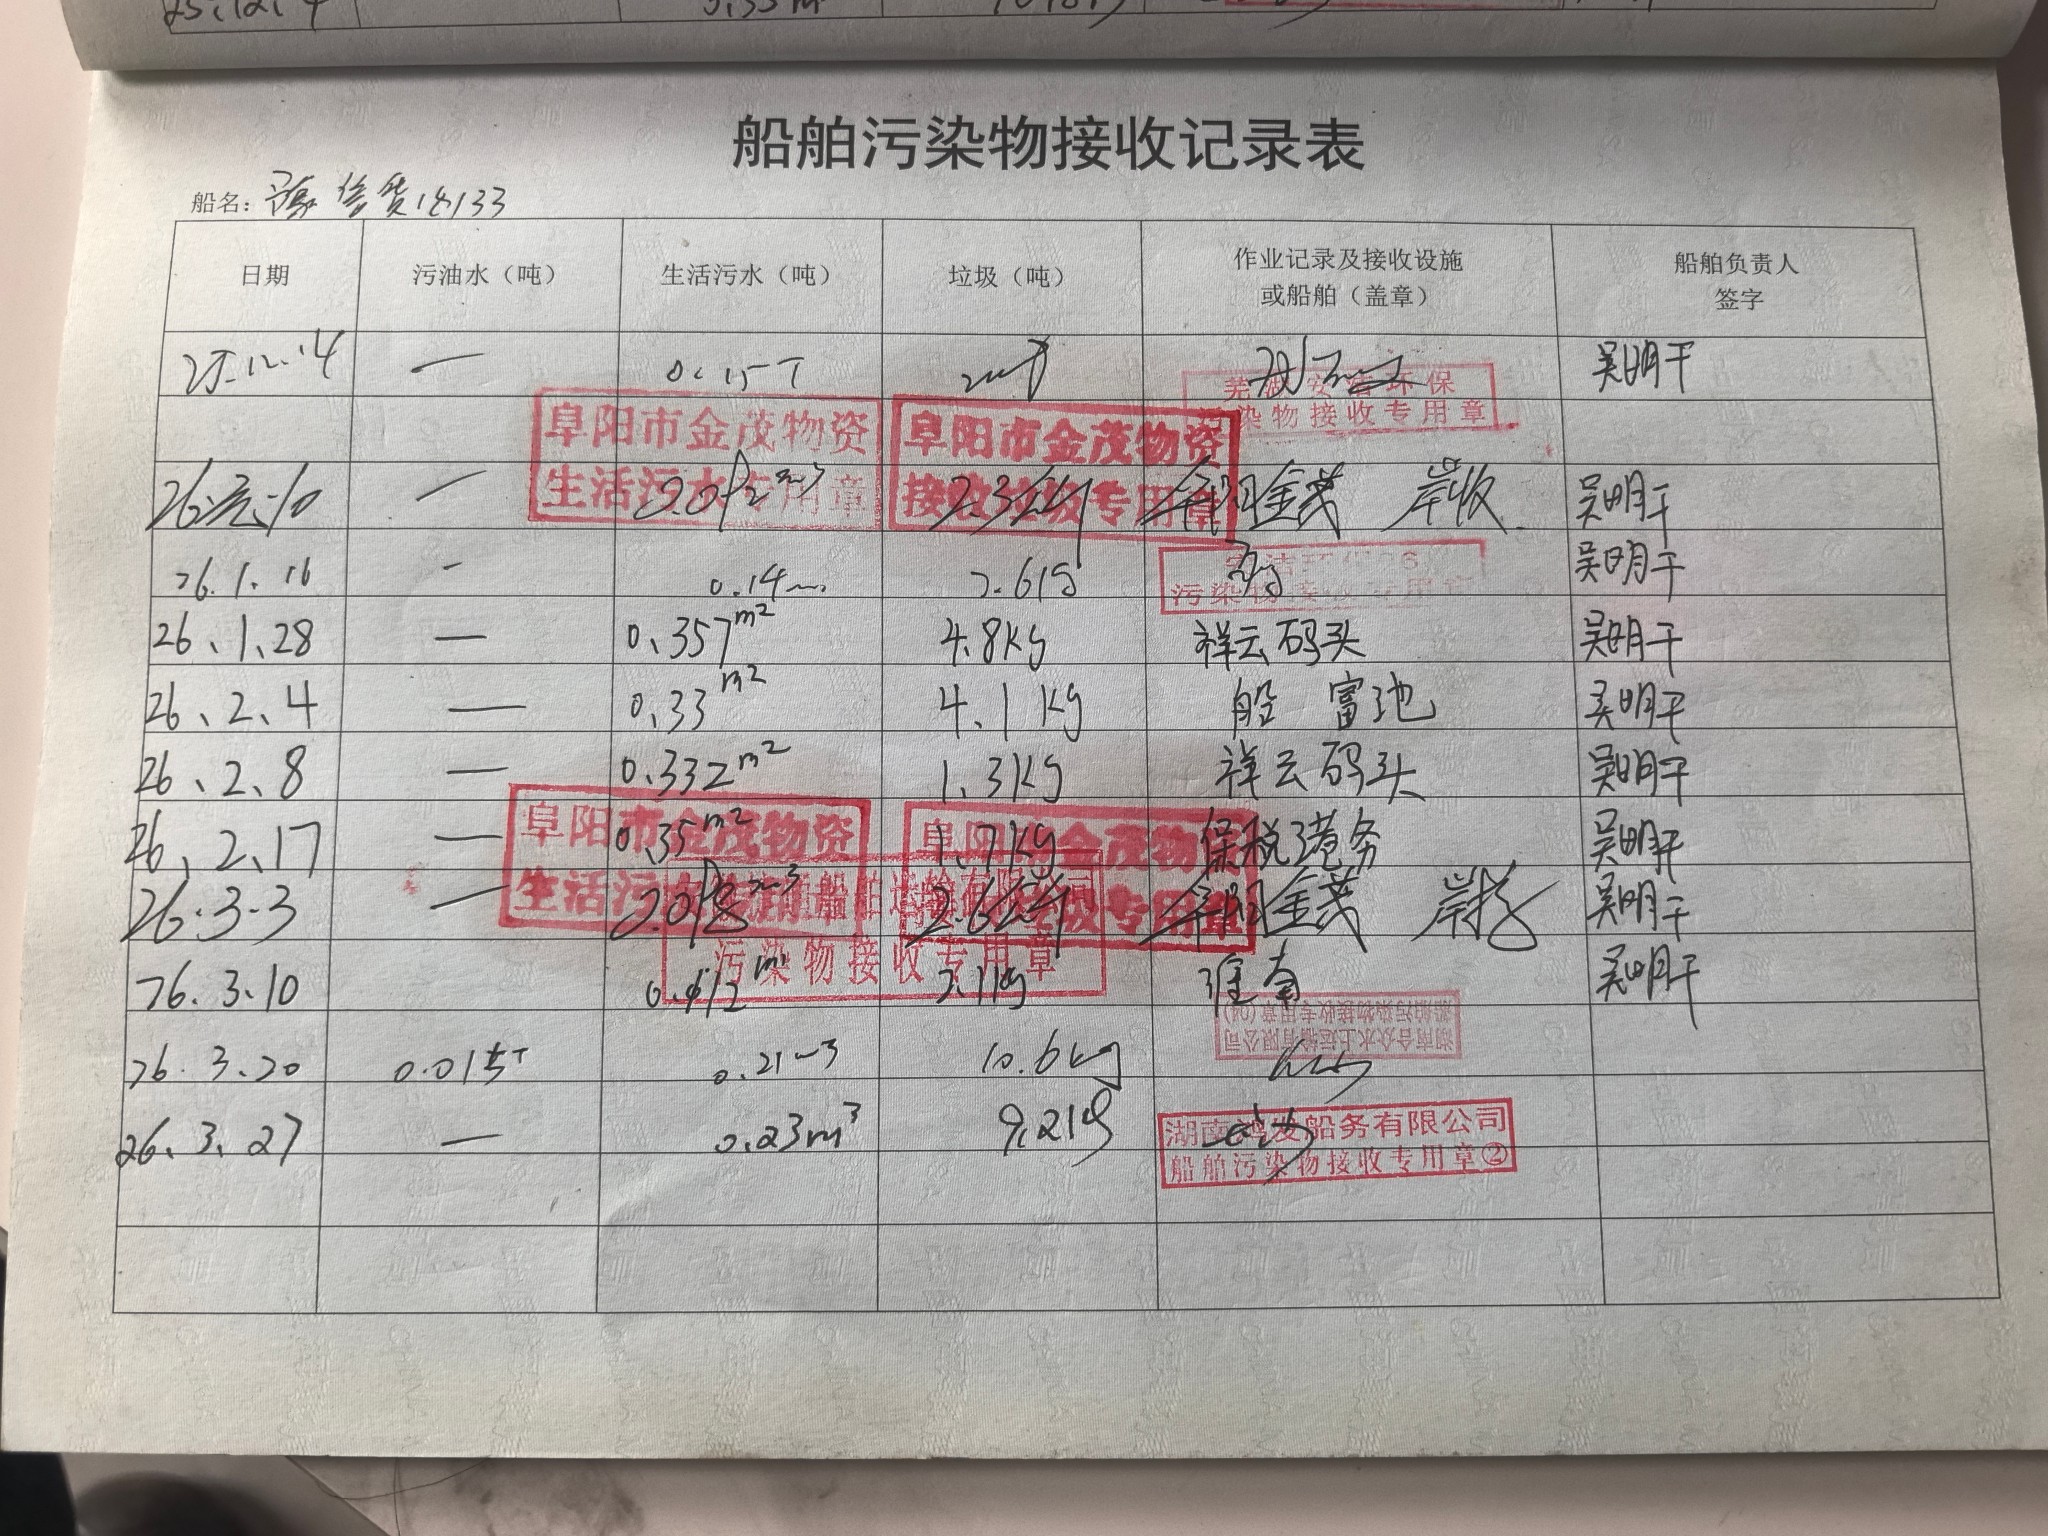 船舶污染物接收记录表
船名：豫信货18133
日期 污油水（吨） 生活污水（吨） 垃圾（吨） 作业记录及接收设施或船舶（盖章） 船舶负责人签字
25.12.14 — 0.15T 吴明干
芜湖安洁环保
污染物接收专用章
阜阳市金茂物资
生活污水专用章
阜阳市金茂物资
接收垃圾专用章
— 阜阳金茂 岸收 吴明干
26.1.16 - 0.14 2.61g 吴明干
污染物接收专用章
26、1、28 — 0.357m² 4.8Kg 祥云码头 吴明干
26、2、4 — 0.33m² 4.1Kg 船 富池 吴明干
26、2、8 — 0.332m² 1.3Kg 祥云码头 吴明干
26、2、17 — 0.35m² 1.7Kg 保税港务 吴明干
阜阳市金茂物资
生活污
阜阳市金茂物
圾专用章
船舶运输有限公司
污染物接收专用章
26.3.3 — 阜阳金茂 吴明干
26.3.10 2.1kg 淮南 吴明干
湖南合众水上运输有限公司
船舶污染物接收专用章(04)
26.3.20 0.015T 0.21m3 10.6kg
26.3.27 — 0.23m³ 9.21g
湖南鸿发船务有限公司
船舶污染物接收专用章②